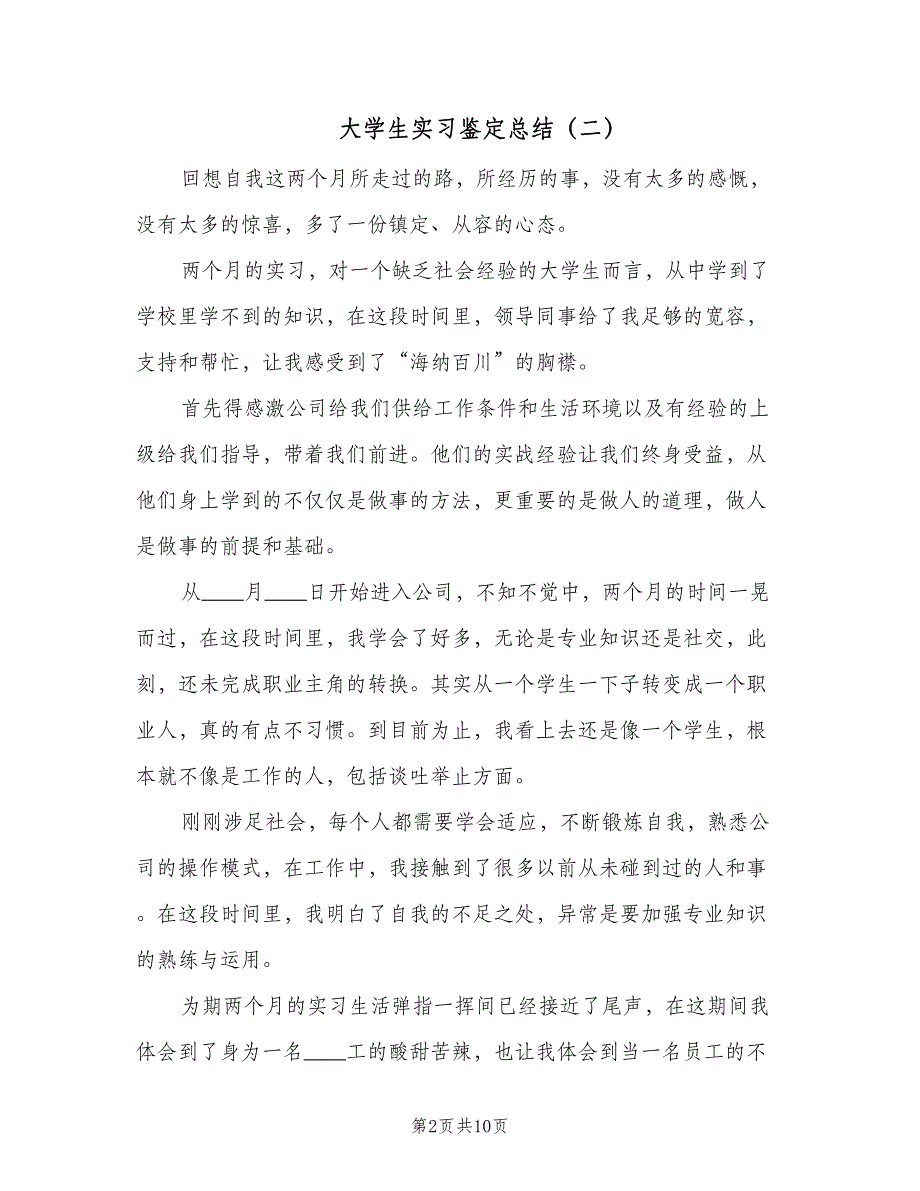 大学生实习鉴定总结（二）
回想自我这两个月所走过的路，所经历的事，没有太多的感慨，
没有太多的惊喜，多了一份镇定、从容的心态。
两个月的实习，对一个缺乏社会经验的大学生而言，从中学到了
学校里学不到的知识，在这段时间里，领导同事给了我足够的宽容，
支持和帮忙，让我感受到了“海纳百川”的胸襟。
首先得感激公司给我们供给工作条件和生活环境以及有经验的上
级给我们指导，带着我们前进。他们的实战经验让我们终身受益，从
他们身上学到的不仅仅是做事的方法，更重要的是做人的道理，做人
是做事的前提和基础。
从____月____日开始进入公司，不知不觉中，两个月的时间一晃
而过，在这段时间里，我学会了好多，无论是专业知识还是社交，此
刻，还未完成职业主角的转换。其实从一个学生一下子转变成一个职
业人，真的有点不习惯。到目前为止，我看上去还是像一个学生，根
本就不像是工作的人，包括谈吐举止方面。
刚刚涉足社会，每个人都需要学会适应，不断锻炼自我，熟悉公
司的操作模式，在工作中，我接触到了很多以前从未碰到过的人和事
。在这段时间里，我明白了自我的不足之处，异常是要加强专业知识
的熟练与运用。
为期两个月的实习生活弹指一挥间已经接近了尾声，在这期间我
体会到了身为一名____工的酸甜苦辣，也让我体会到当一名员工的不
第2页共10页